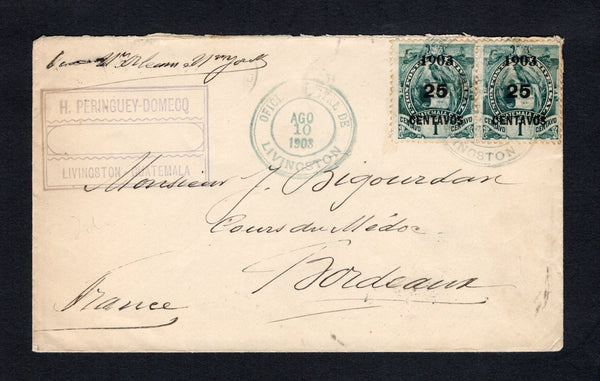 Orleans New York
H. PERINGUEY-DOMECQ
LIVINGSTON GUATEMALA
DE
LIVINGSTON
AGO
10
1903
1903 1903
25 25
CENTAVOS CENTAVOS
1 1
LIVINGSTON
Monsieur J. Bigourdan
Cours du Médoc
Bordeaux
France